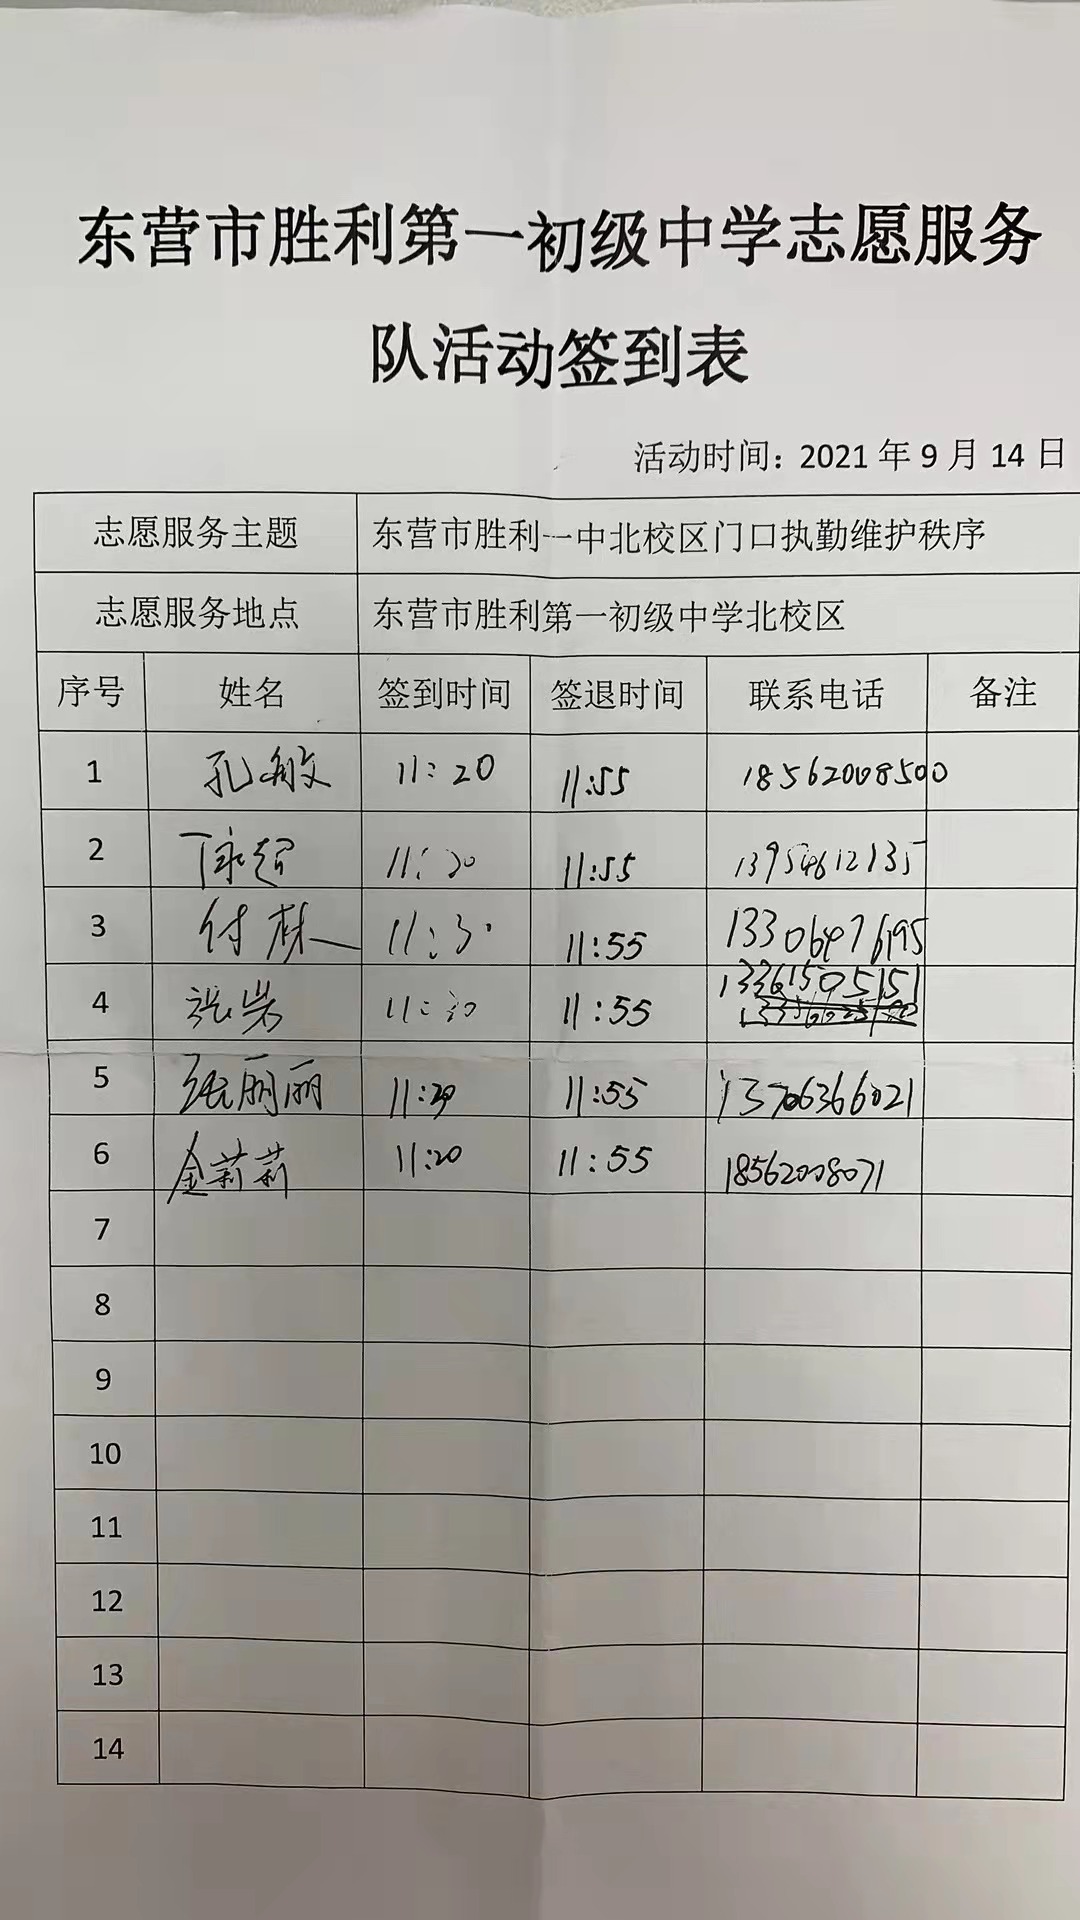 东营市胜利第一初级中学志愿服务
队活动签到表
活动时间：2021 年 9 月 14 日
志愿服务主题 东营市胜利一中北校区门口执勤维护秩序
志愿服务地点 东营市胜利第一初级中学北校区
序号 姓名 签到时间 签退时间 联系电话 备注
1 孔敏 11:20 11:55 18562008500
2 11:55 13954612135
3 付林 11:30 11:55 13306476195
4 张岩 11:55 13361505151
5 张丽丽 11:20 11:55 13706366021
6 金莉莉 11:20 11:55 18562008071
7
8
9
10
11
12
13
14